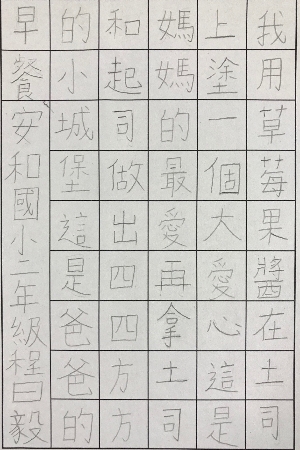 我用草莓果醬在土司
上塗一個大愛心這是
媽媽的最愛再拿土司
和起司做出四四方方
的小城堡這是爸爸的
早餐安和國小二年級程日毅